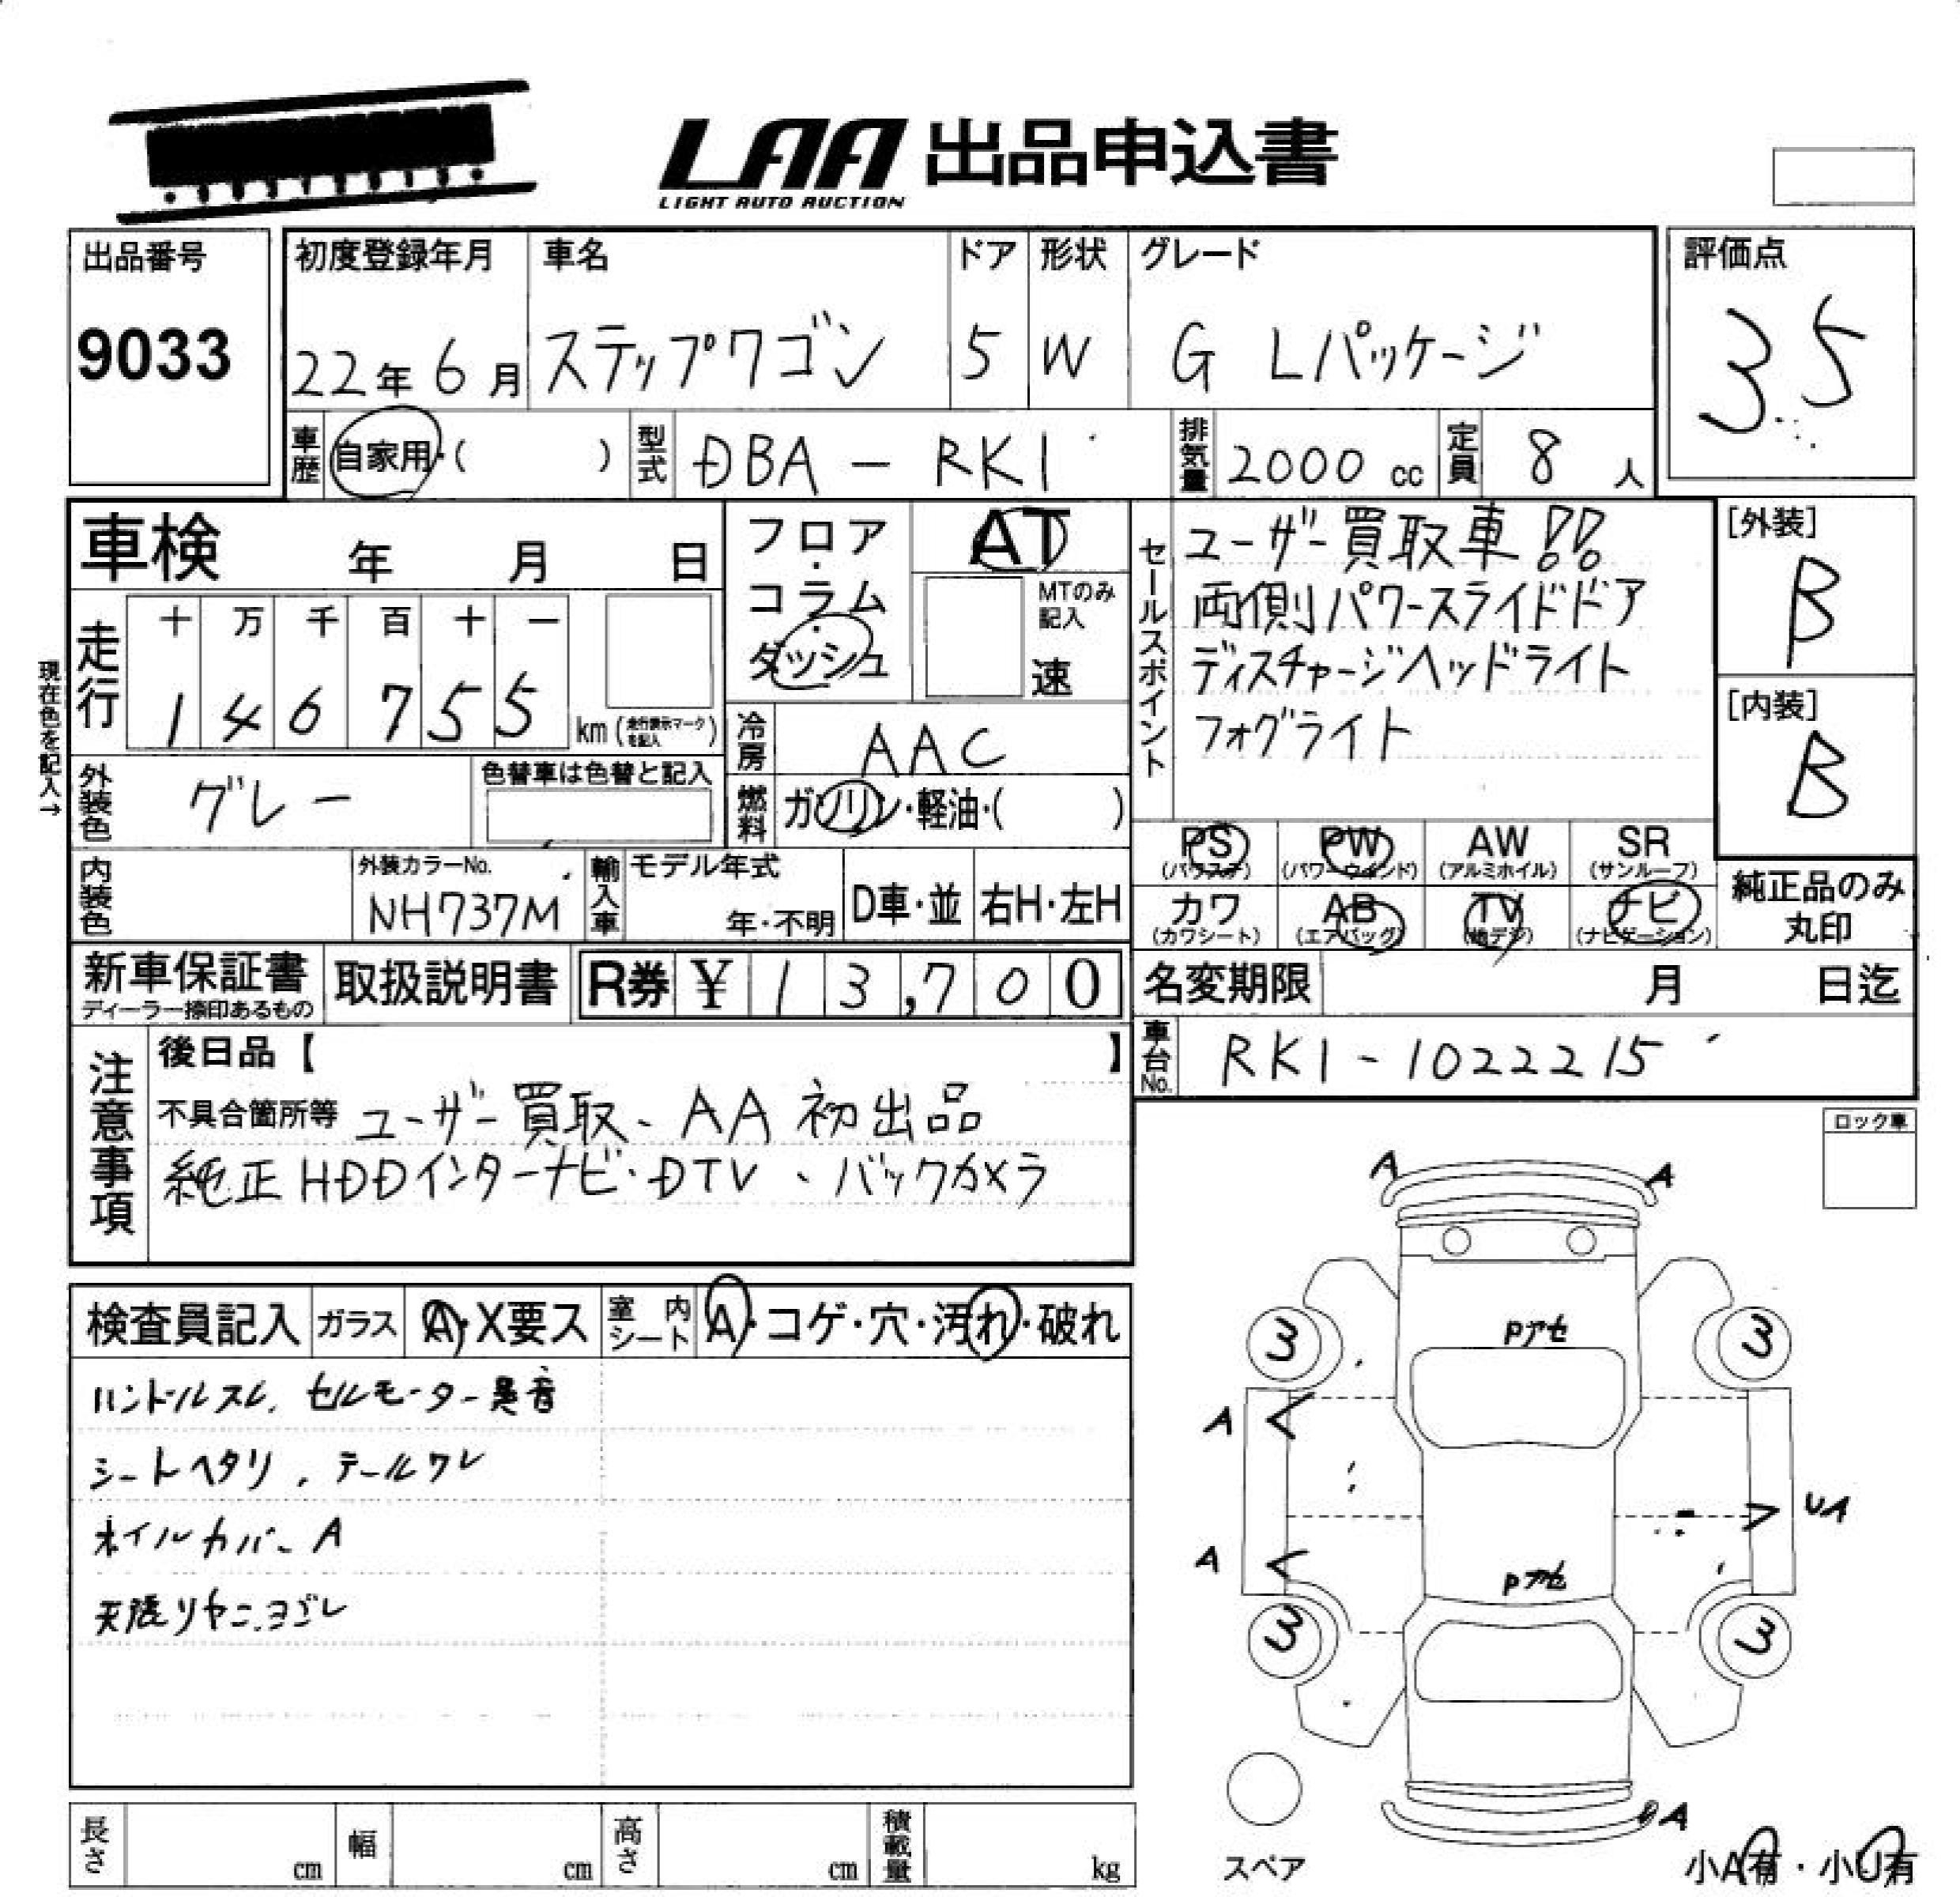 LAA 出品申込書
LIGHT AUTO AUCTION
出品番号
9033
初度登録年月
22年 6月
車名
ステップワゴン
ドア
5
形状
W
グレード
G Lパッケージ
評価点
3.5
車歴 自家用・( )
型式 DBA - RK1
排気量 2000 cc
定員 8 人
車検 年 月 日
フロア・コラム・ダッシュ
AT
MTのみ記入
速
セールスポイント
ユーザー買取車!!
両側パワースライドドア
ディスチャージヘッドライト
フォグライト
[外装]
B
[内装]
B
現在色を記入→
走行
十 万 千 百 十 一
1 4 6 7 5 5 km (走行表示マークを記入)
冷房 AAC
外装色 グレー
色替車は色替と記入
燃料 ガソリン・軽油・( )
PS (パワステ) PW (パワーウインド) AW (アルミホイル) SR (サンルーフ)
カワ (カワシート) AB (エアバッグ) TV (地デジ) ナビ (ナビゲーション)
純正品のみ丸印
内装色
外装カラーNo.
NH737M
輸入車
モデル年式
年・不明
D車・並
右H・左H
新車保証書
ディーラー捺印あるもの
取扱説明書
R券 ¥ 13,700
名変期限 月 日迄
車台No. RK1-1022215
注意事項
後日品【 】
不具合箇所等 ユーザー買取、AA初出品
純正HDDインターナビ・DTV、バックカメラ
ロック車
検査員記入
ガラス A・X要ス
室内シート A・コゲ・穴・汚れ・破れ
ハンドルスレ、セルモーター異音
シートヘタリ、テールワレ
ホイルカバーA
天張りヤニ、ヨゴレ
A A
Pアセ
3 3
A
UA
A
Pアセ
3 3
A
スペア
小A有・小U有
長さ cm
幅 cm
高さ cm
積載量 kg